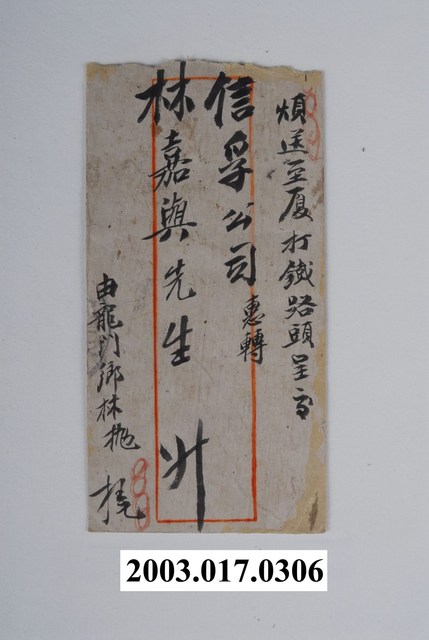 煩送至厦打鐵路頭呈交
信孚公司惠轉
林嘉興先生升
由龍門鄉林拋
2003.017.0306